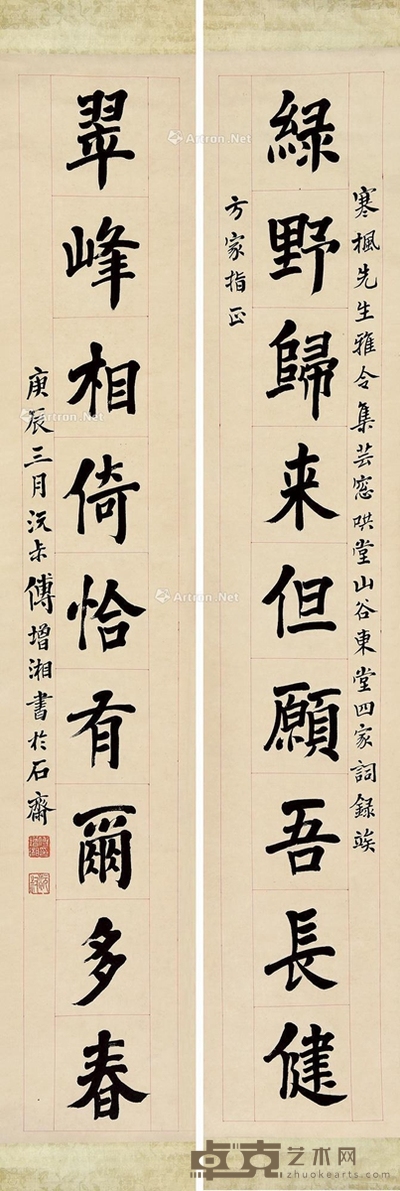 寒楓先生雅令集芸窓哄堂山谷東堂四家詞錄竢
綠野歸来但願吾長健
方家指正
翠峰相倚恰有爾多春
庚辰三月沅叔傅增湘書於石齋
Artron.Net
Artron.Net
Artron.Net
Artron.Net
卓克艺术网
zhuokearts.com